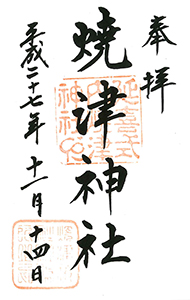 奉拝
焼津神社
平成二十七年十一月十四日